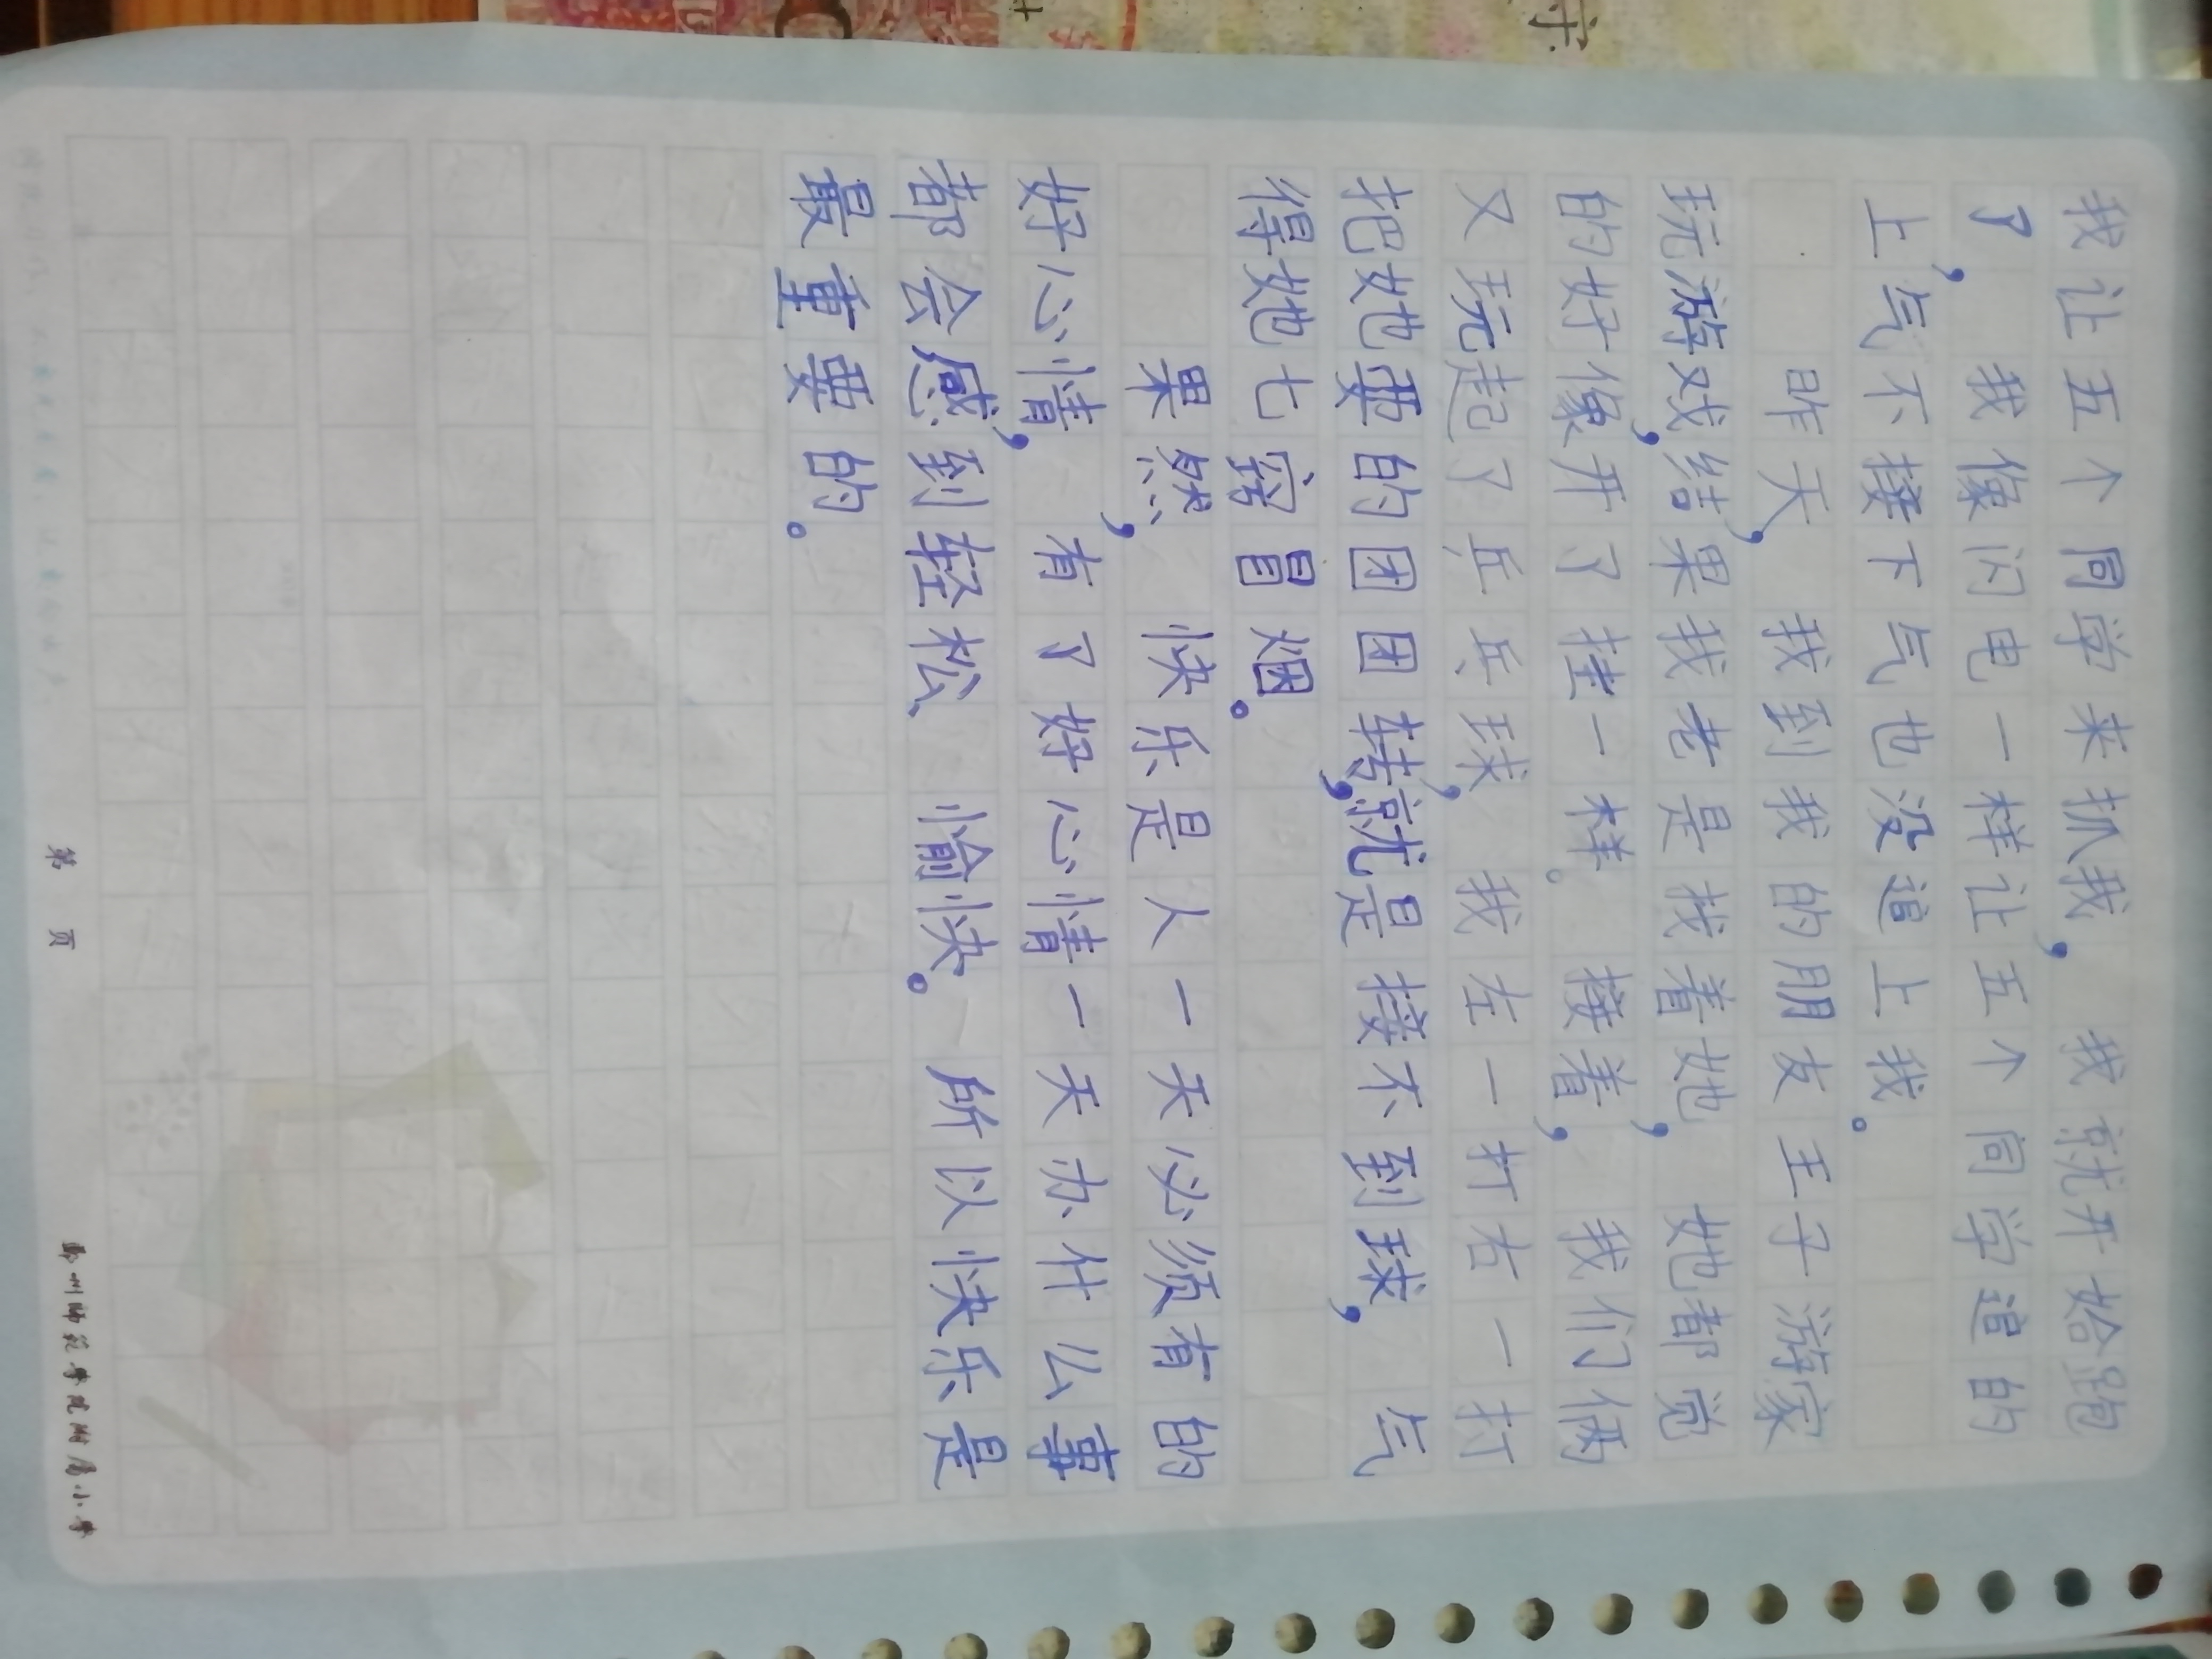 我让五个同学来抓我，我就开始跑
了，我像闪电一样让五个同学追的
上气不接下气也没追上我。
昨天，我到我的朋友王子游家
玩游戏，结果我老是找着她，她都觉
的好像开了挂一样。接着，我们俩
又玩起了乒乓球，我左一打右一打
把她耍的团团转，就是接不到球，气
得她七窍冒烟。
果然，快乐是人一天必须有的
好心情，有了好心情一天办什么事
都会感到轻松 愉快。所以快乐是
最重要的。
第 页
郑州师范学院附属小学
守